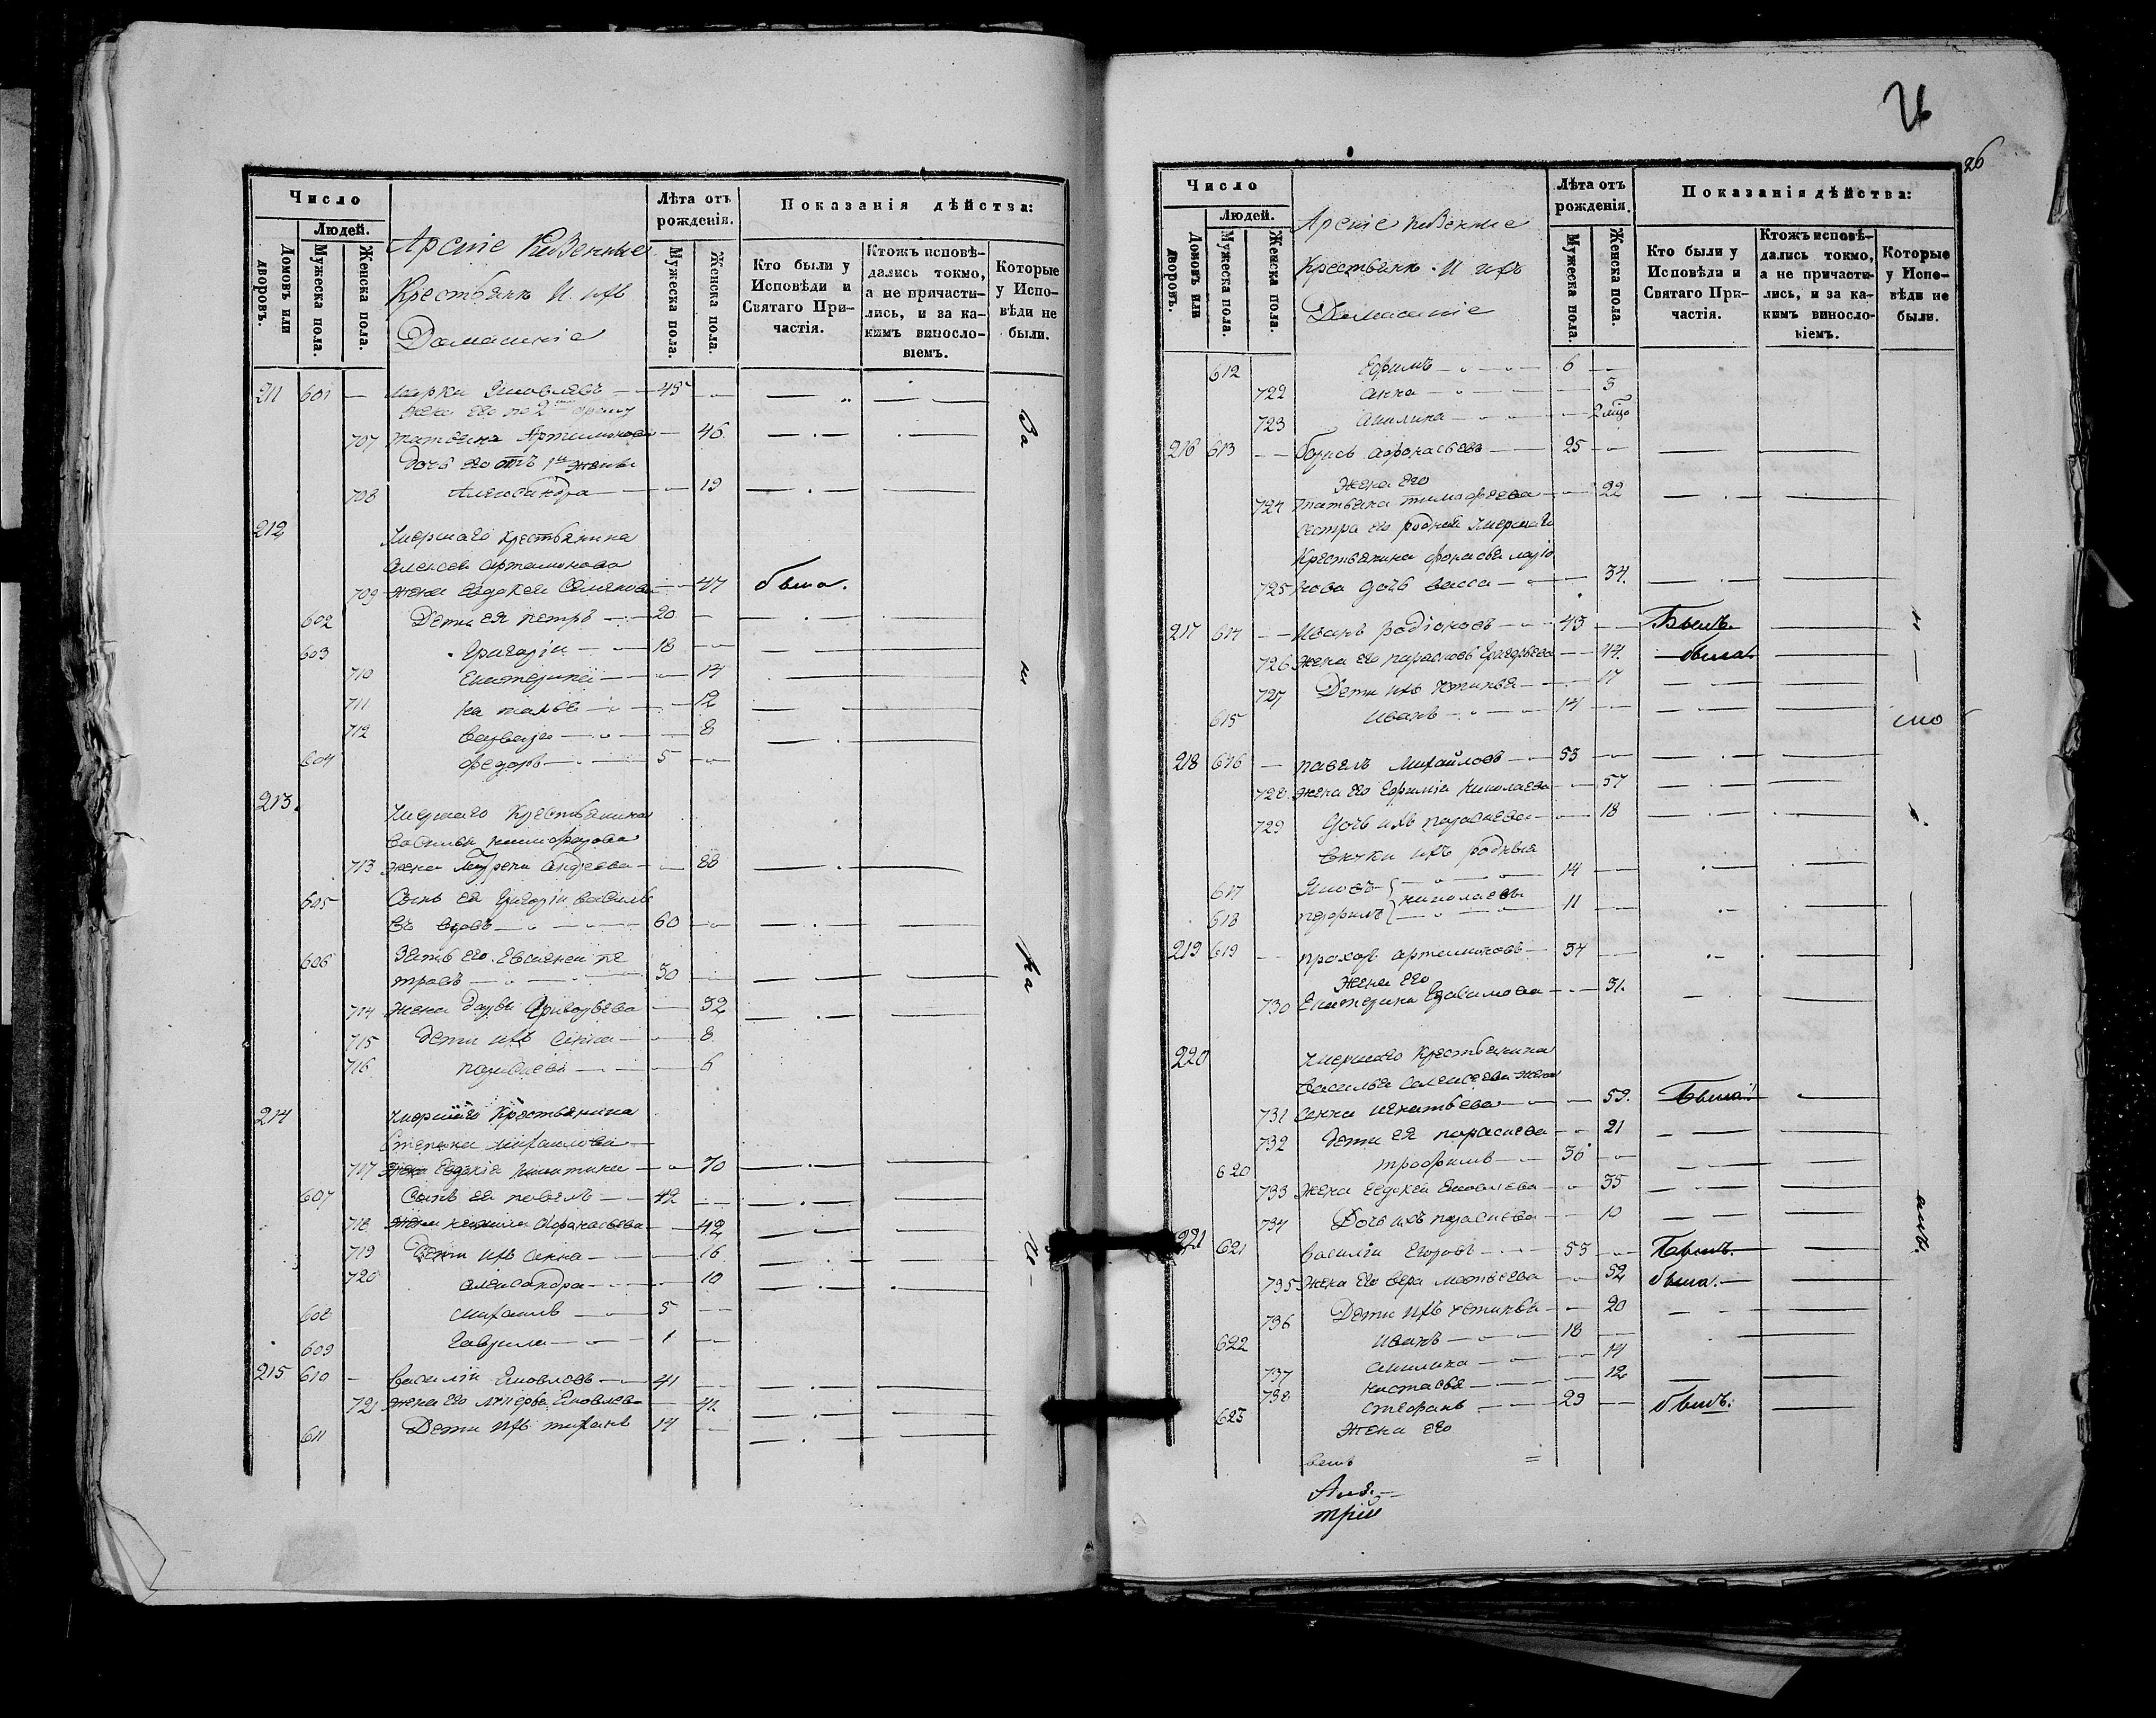 Число
Людей.
Домовъ или дворовъ.
Мужеска пола.
Женска пола.
Крестьянъ и ихъ
Домашніе
Лѣта отъ рожденія.
Мужеска пола.
Женска пола.
Показанія дѣйства:
Кто были у Исповѣди и Святаго Причастія.
Ктожъ исповѣдались токмо, а не причастились, и за какимъ винословіемъ.
Которые у Исповѣди не были.
211 601 — Марки Яковлевъ — 45
жена его по 2 браку
707 Татьяна Артамонова — 46
дочь его отъ 1й жены
708 Александра — 19
212
Умершаго крестьянина
Алексея Артамонова
709 жена Евдокея Семенова — 47 была.
602 Дети ея Петръ — 20
603 Григорiи — 18
710 Екатерина — 14
711 Наталья — 12
712 Варвара — 8
604 Федоръ — 5
213.
Умершаго Крестьянина
Василья Никифорова
713 жена Андреева — 88
605 Сынъ ея Григорiи Василье
въ вдовъ — 60
606 Зять его Евсигней Пе
тровъ — 30
714 жена Дарья Григорьева — 32
715 дети ихъ Анна — 8
716 Параскева — 6
214
Умершаго Крестьянина
Степана Михаилова
717 жена Евдокiя Никитина — 70
607 Сынъ ея Павелъ — 42
718 жена Афанасьева — 42
719 Дети ихъ Анна — 16
720 Александра — 10
608 Михаилъ — 5
609 Гаврила — 1
215 610 — Василiи Яковлевъ — 41
721 жена его Яковлева — 41
611 Дети ихъ Тихонъ 14
За
и
ка
26
Число
Людей.
Домовъ или дворовъ.
Мужеска пола.
Женска пола.
Крестьянъ и ихъ
Домашнiе
Лѣта отъ рожденія.
Мужеска пола.
Женска пола.
Показанія дѣйства:
Кто были у Исповѣди и Святаго Причастія.
Ктожъ исповѣдались токмо, а не причастились, и за какимъ винословіемъ.
Которые у Исповѣди не были.
612 Ефимъ — 6
722 Анна — 3
723 Акилина —
216 613 — Борисъ Афонасьевъ — 25
жена его
724 Татьяна Тимофеева — 22
сестра его родная умершаго
Крестьянина Фонасья Ларiо
725 нова дочь Васса — 34.
217 614 — Иванъ Родiоновъ — 43 — Былъ.
726 жена его Григорьева — 44. была.
727 Дети ихъ Устинья — 17
615 Иванъ — 14
218 616 — Павелъ Михайловъ — 53
728 жена его Ефимiя Николаева — 57
729 Дочь ихъ Параскева — 18
внуки ихъ родныя
617 Яковъ 14
николаевы
618 11
219 619 — Прохоръ Артамоновъ — 34
жена его
730 Екатерина — 31.
220
Умершаго Крестьянина
Василья Алексеева жена
731 Анна Игнатьева — 59. Была.
732 дети ея Параскева — 21
620 Трофимъ — 30
733 жена Евдокея Яковлева — 35
734 Дочь ихъ Параскева — 10
221 621 Василiи Егоровъ — 53 — Былъ.
735 жена его Вера Матвеева — 52 была.
736 Дети ихъ Устинья — 20
622 Иванъ — 18
737 Акилина — 14
738 Настасья — 12
623 Стефанъ — 29 былъ.
жена его
трiй